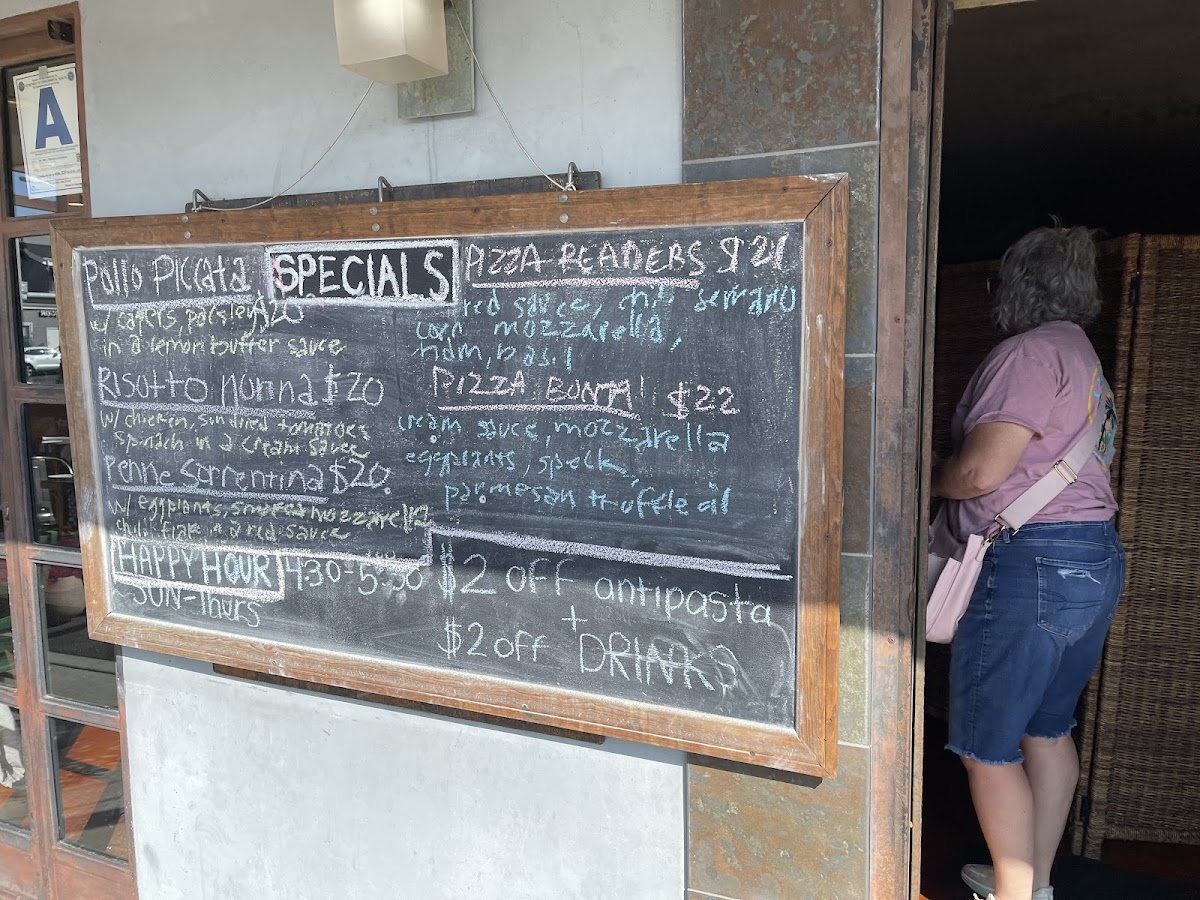 A
SPECIALS
Pollo Piccata
w/ capers, parsley $20
in a lemon butter sauce
Risotto nonna $20
w/ chicken, sundried tomatoes
spinach in a cream sauce
Penne Sorrentina $20
w/ eggplants, smoked mozzarella
chili flake in a red sauce
PIZZA READERS $21
red sauce, serrano
corn, mozzarella,
ham, basil
PIZZA BONTA! $22
cream sauce, mozzarella
eggplants, speck,
parmesan truffle oil
HAPPY HOUR 4:30-5:30
SUN-Thurs
$2 OFF antipasta
+
$2 off DRINKS